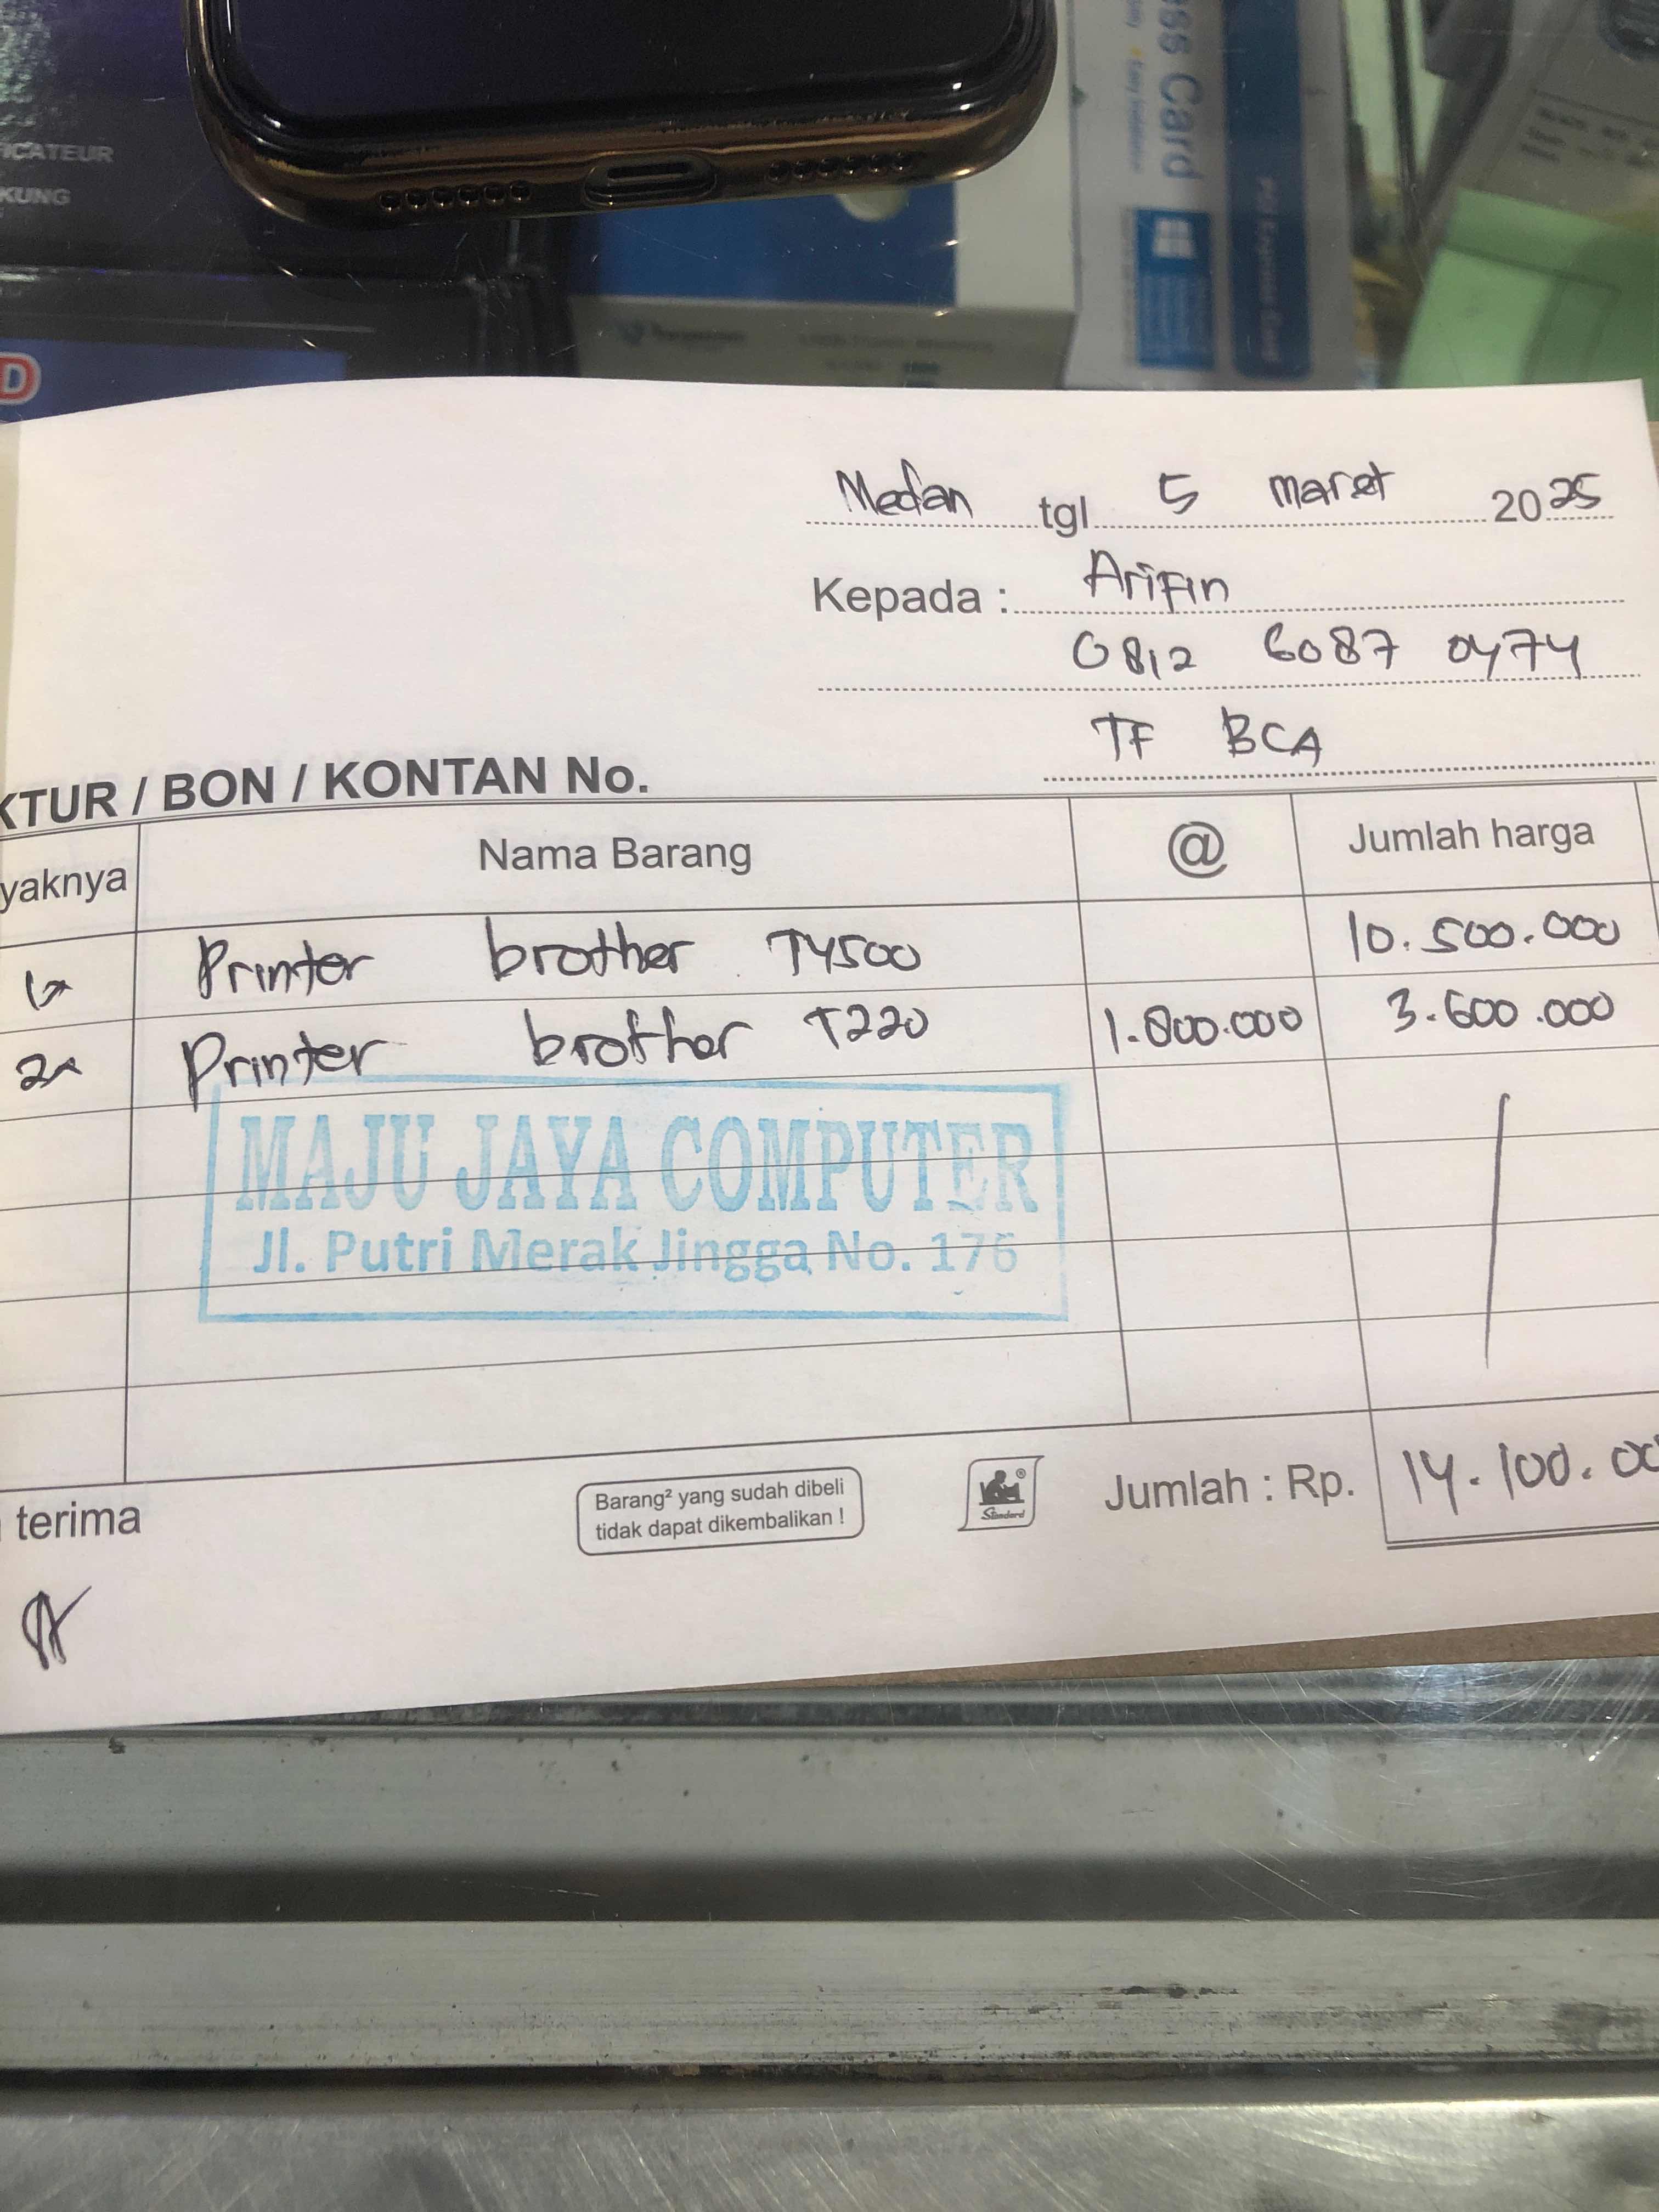 ICATEUR
KUNG
D
ess Card
PCI Express Card
Medan tgl 5 maret 2025
Kepada : Arifin
0812 6087 0474
TF BCA
KTUR / BON / KONTAN No.
yaknya Nama Barang @ Jumlah harga
1x Printer brother T4500 10.500.000
2x Printer brother T220 1.800.000 3.600.000
MAJU JAYA COMPUTER
Jl. Putri Merak Jingga No. 176
terima
Barang² yang sudah dibeli
tidak dapat dikembalikan !
Standard
Jumlah : Rp. 14.100.00